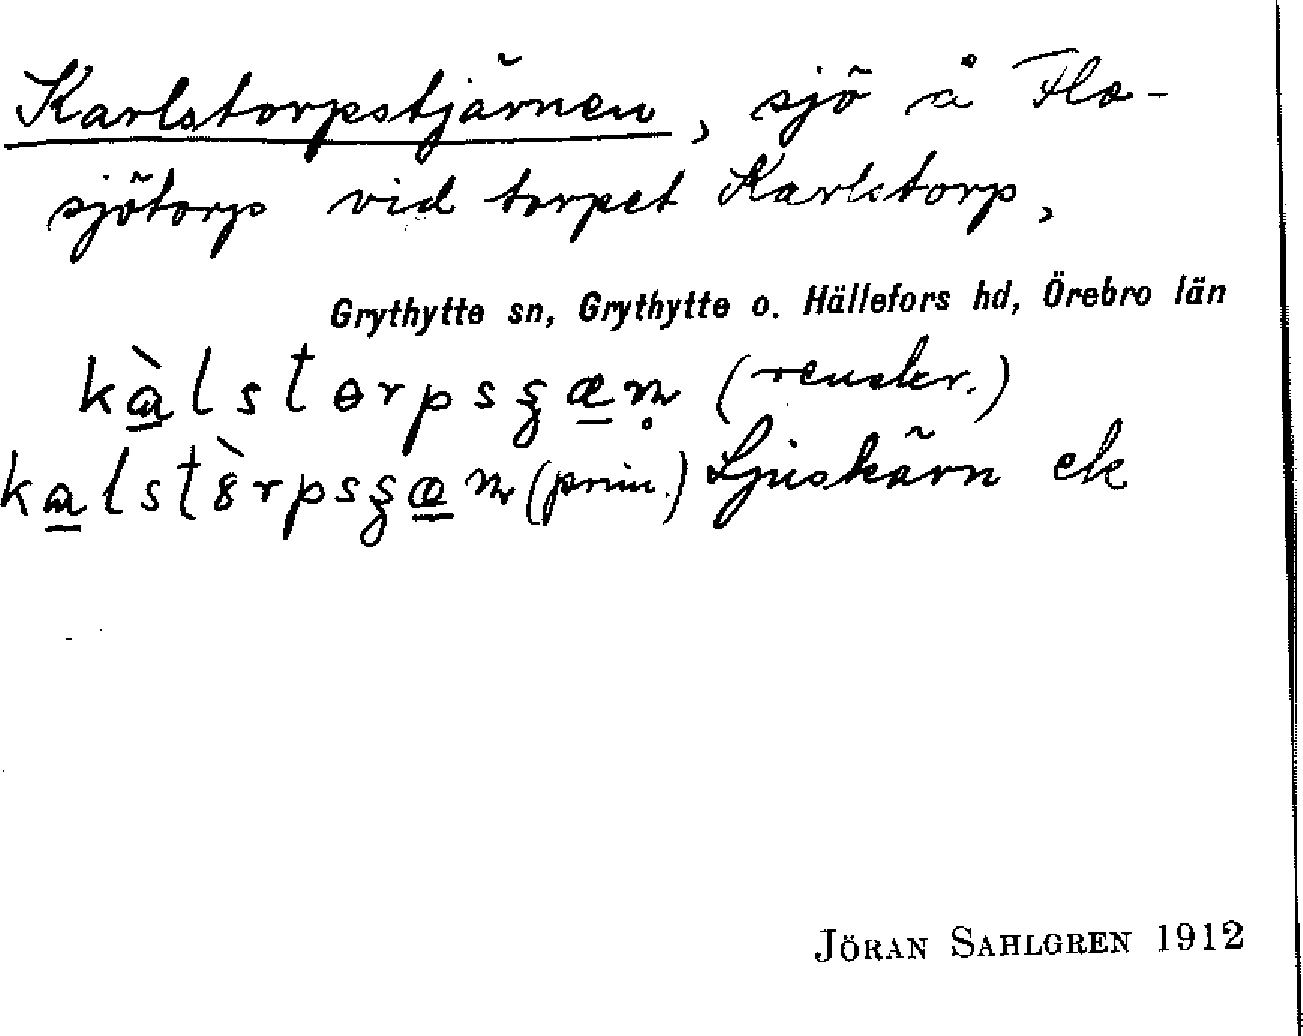 Karlstorpstjärnen, sjö å Flo-
sjötorp vid torpet Karlstorp,
Grythytte sn, Grythytte o. Hällefors hd, Örebro län
kàlstɵrpsʒæn̥ (renskr.)
kalstòrpsʒæn (prim.) Ljuskärn ek
JÖRAN SAHLGREN 1912